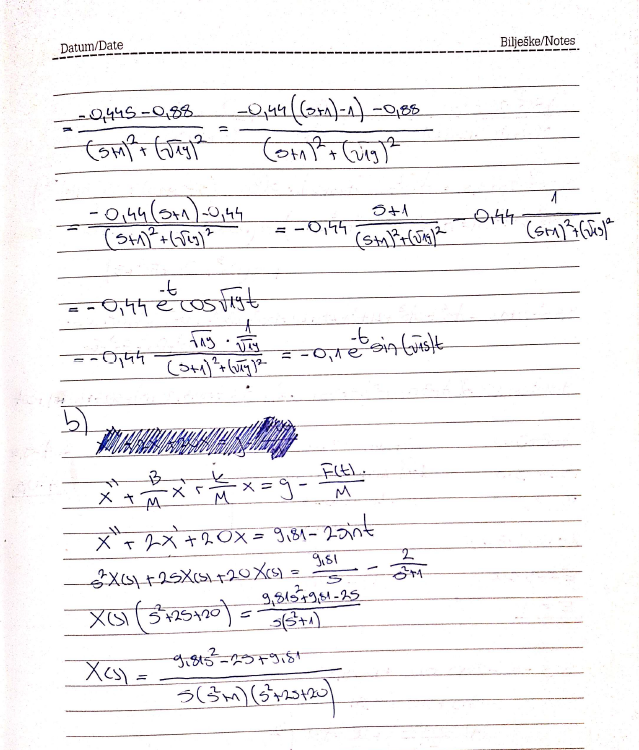 Datum/Date Bilješke/Notes
= (-0,44s - 0,88)/((s+1)² + (√19)²) = (-0,44((s+1)-1) - 0,88)/((s+1)² + (√19)²)
= (-0,44(s+1) - 0,44)/((s+1)² + (√19)²) = -0,44 (s+1)/((s+1)² + (√19)²) - 0,44 1/((s+1)² + (√19)²)
= -0,44 e^-t cos√19t
= -0,44 (√19 · 1/√19)/((s+1)² + (√19)²) = -0,1 e^-t sin(√19)t
b)
x'' + B/M x' + k/M x = g - F(t)/M
x'' + 2x' + 20x = 9,81 - 2sint
s²X(s) + 2sX(s) + 20X(s) = 9,81/s - 2/(s²+1)
X(s)(s²+2s+20) = (9,81s² + 9,81 - 2s)/(s(s²+1))
X(s) = (9,81s² - 2s + 9,81)/(s(s²+1)(s²+2s+20))